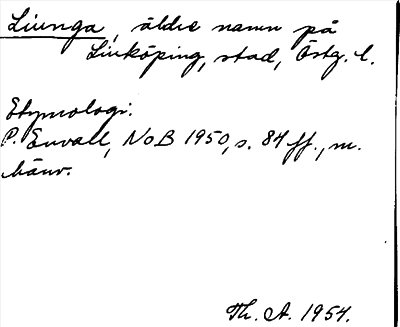 Liunga, äldre namn på
Linköping, stad, Östg. l.
Etymologi:
P. Envall, NoB 1950, s. 84 ff., m.
hänv.
Th. A. 1954.